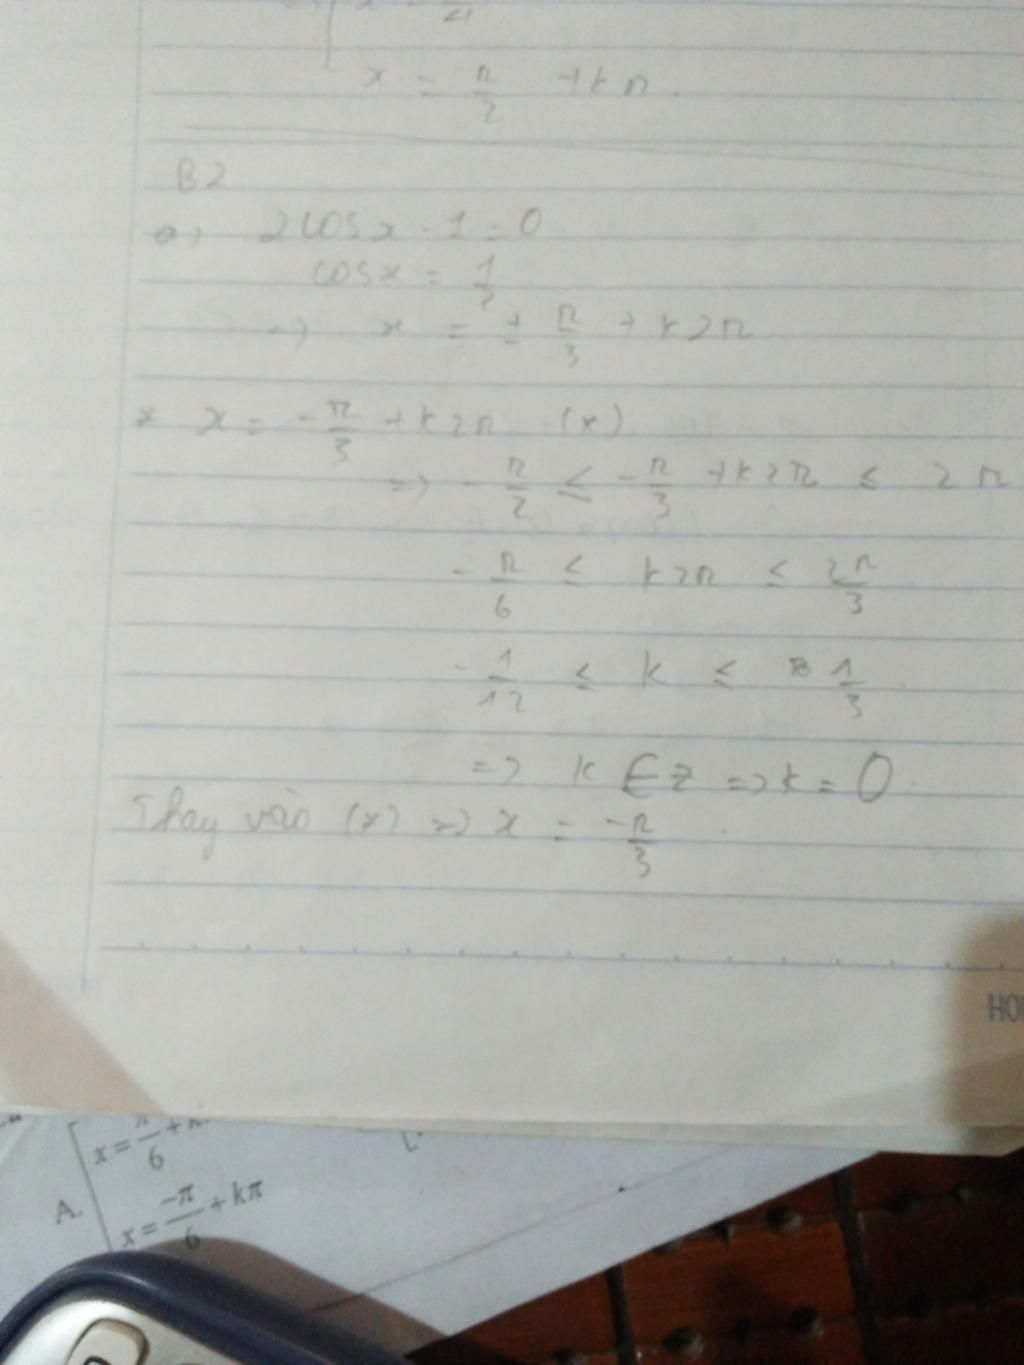 x = π/2 + kπ
B2
a) 2cosx - 1 = 0
cosx = 1/2
=> x = ± π/3 + k2π
* x = -π/3 + k2π (*)
=> -π/2 ≤ -π/3 + k2π ≤ 2π
-π/6 ≤ k2π ≤ 2π/3
-1/12 ≤ k ≤ 1/3
=> k ∈ Z => k = 0
Thay vào (*) => x = -π/3
HO
x = π/6 + k
A.
x = -π/6 + kπ